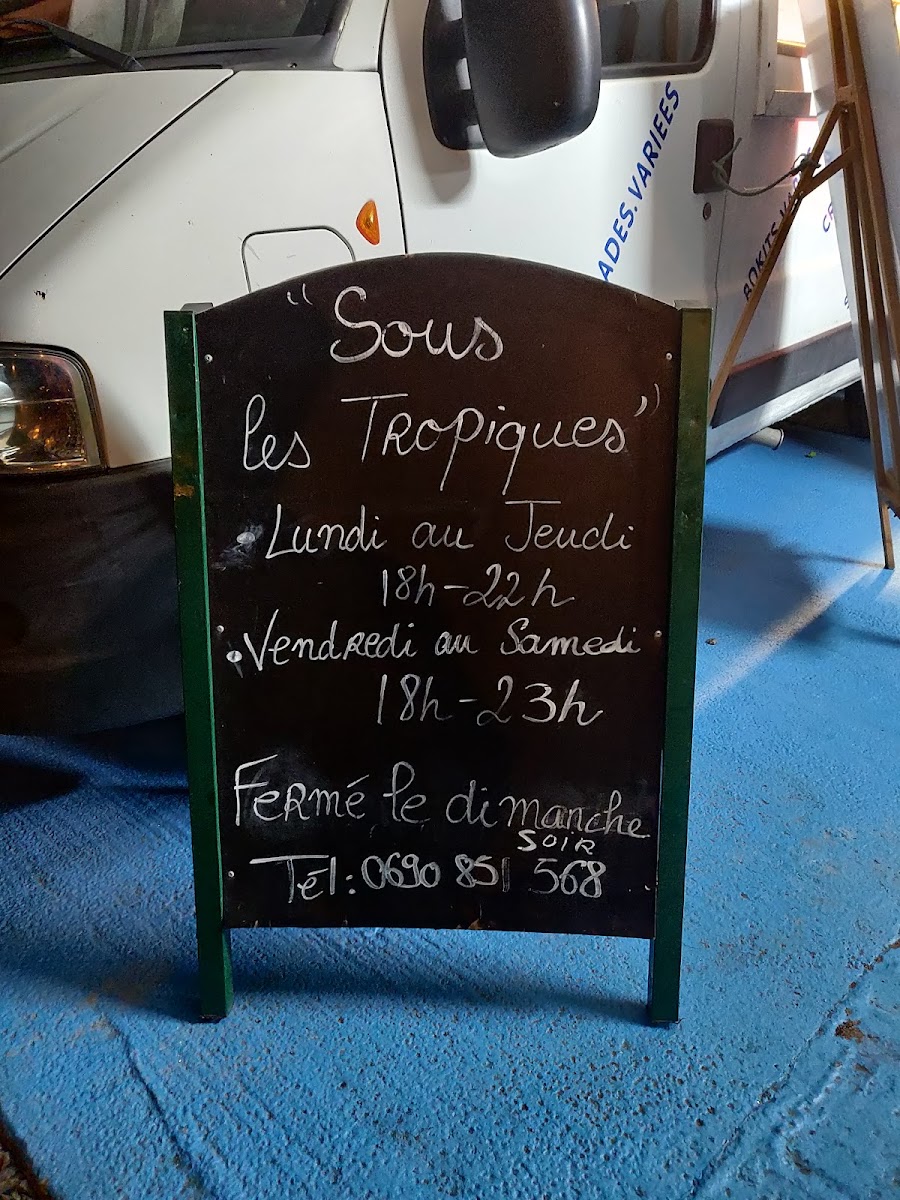 " Sous
les Tropiques "
• Lundi au Jeudi
18h-22h
• Vendredi au Samedi
18h-23h
Fermé le dimanche
SOIR
Tél: 0690 851 568
ADES.VARIEES
BOKITS.VA